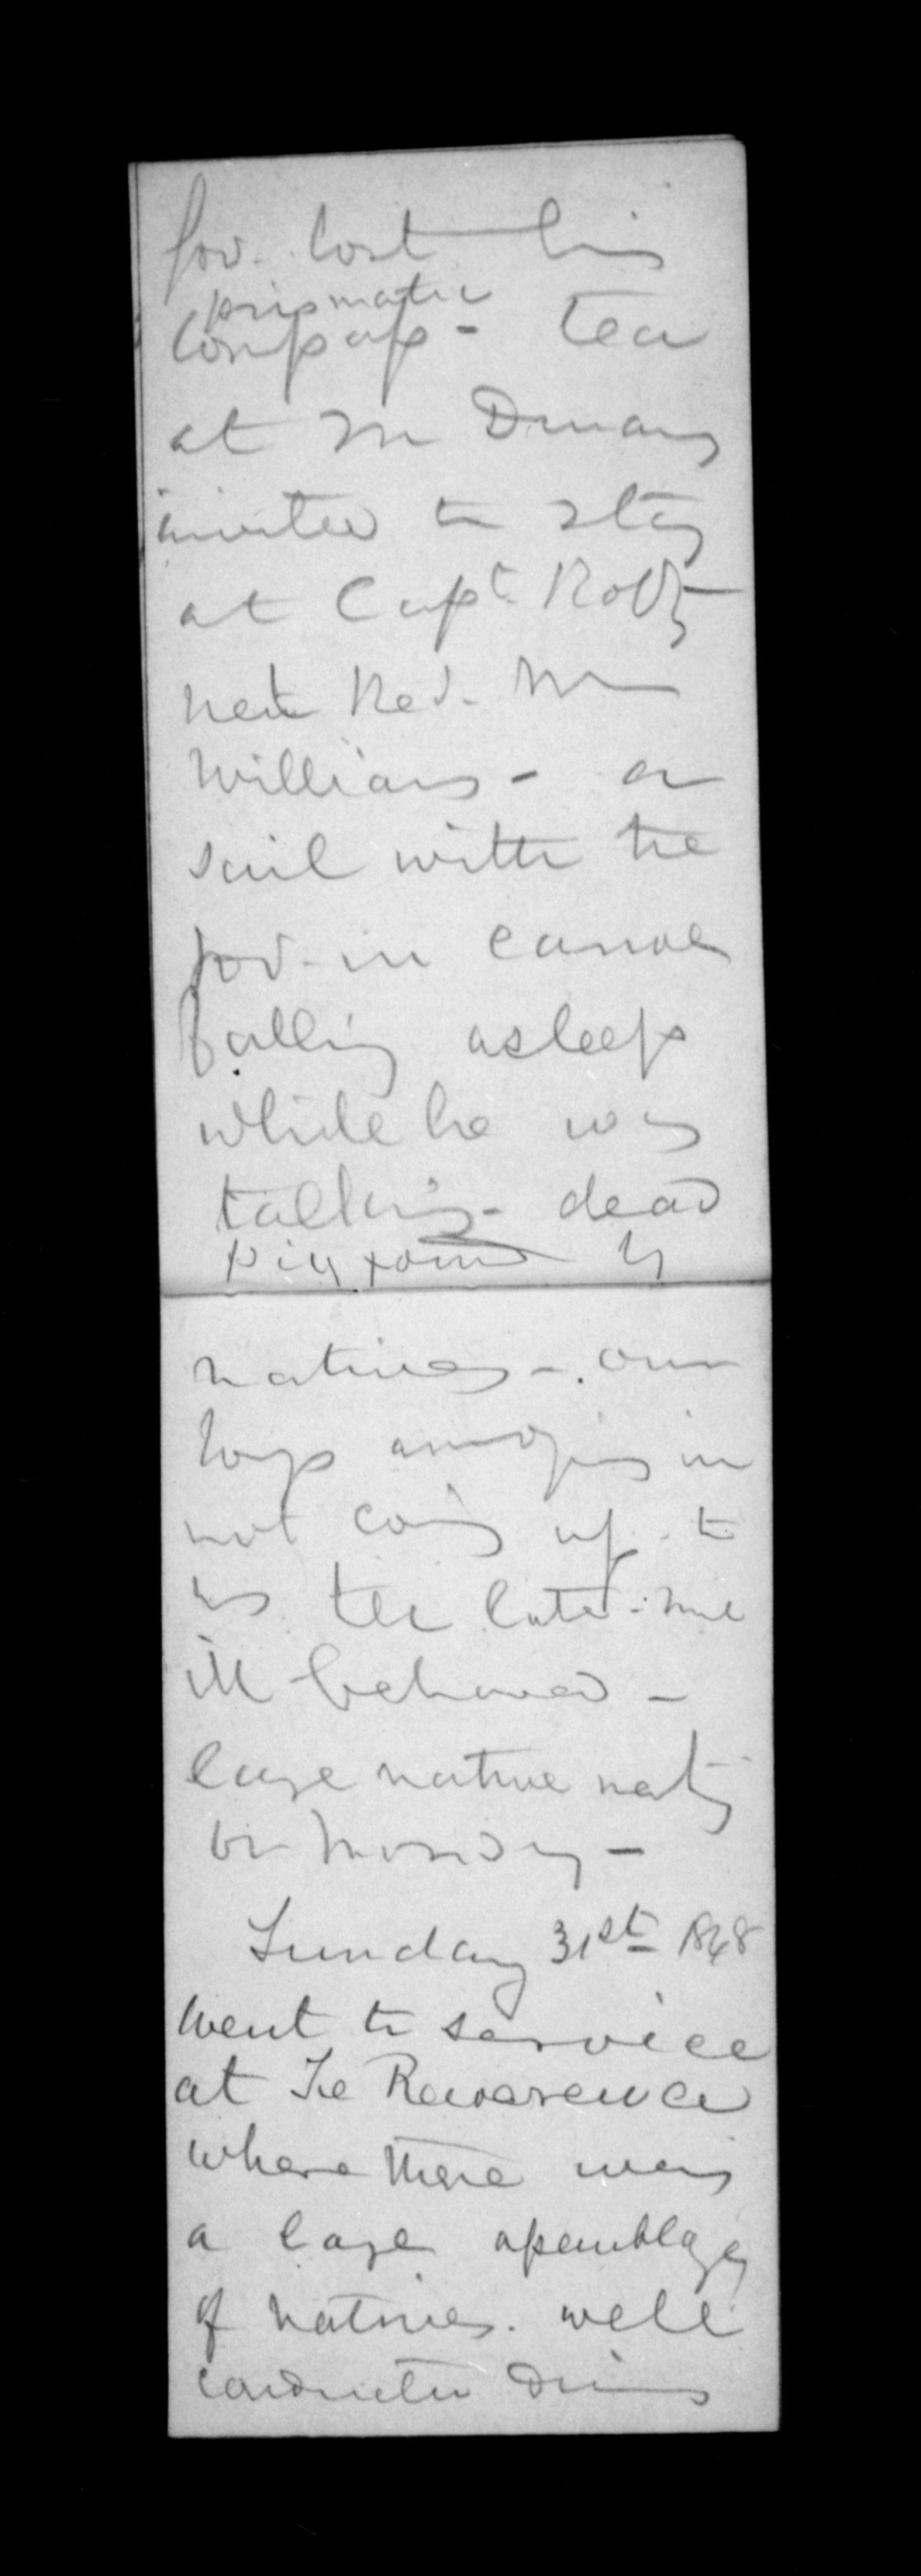 Gov. lost his
prismatic
Compass - tea
at Mr Duncans
invited to stay
at Capt. Robts
next Rev. Mr
Williams - a
sail with the
Gov. in canoe
falling asleep
while he was
talking - dead
pig found by
natives - our
boys annoying in
not coming up to
us till late. - more
ill behaved -
large native meeting
on Monday -
Sunday 31st 1848
Went to service
at Te Rewarewa
where there was
a large assemblage
of natives. well
conducted